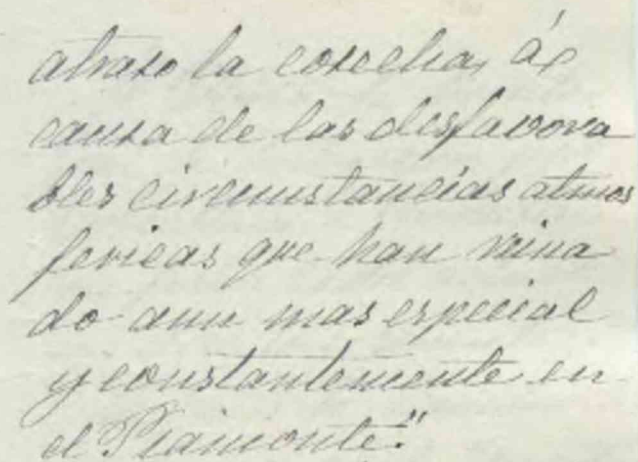 atraso la cosecha, á
causa de las desfavora
bles circunstancias atmos
fericas que han reina
do aun mas especial
y constantemente en
el Piamonte."